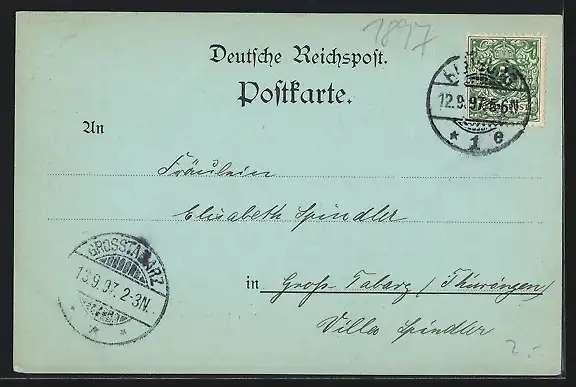 1897
Deutsche Reichspost.
Postkarte.
12.9.97. 5-6N
* 1 e
An
Fräulein
Elisabeth Spindler
GROSSTABARZ
13.9.97. 2-3N.
in Groß Tabarz (Thüringen)
Villa Spindler
2.-